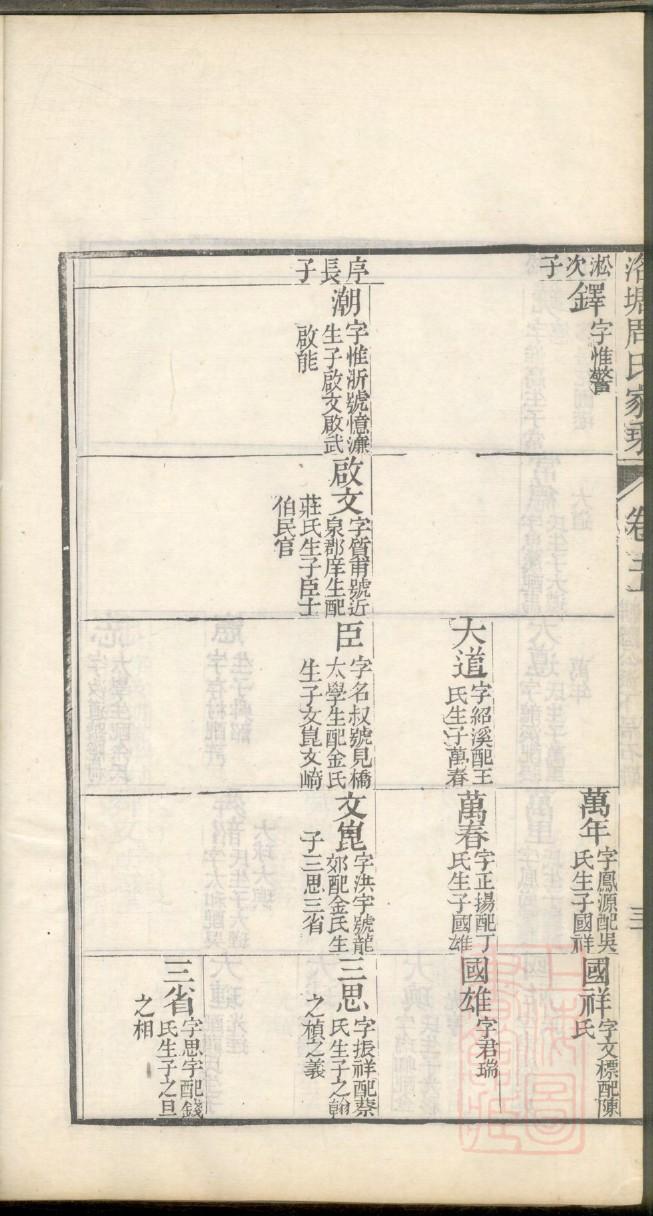 洛塘周氏家乘
卷五
三
淞次子
鐸
字惟警
萬年
字鳳源配吳
氏生子國祥
國祥
字文標配陳
氏
大道
字紹溪配王
氏生子萬春
萬春
字正揚配丁
氏生子國雄
國雄
字君瑞
序長子
潮
字惟浙號憶濂
生子啟文啟武
啟能
啟文
字質甫號近
泉郡庠生配
莊氏生子臣士
伯民官
臣
字名叔號見橋
太學生配金氏
生子文崑文崎
文崑
字洪宇號龍
郊配金氏生
子三思三省
三思
字振祥配蔡
氏生子之翰
之楨之義
三省
字思宇配錢
氏生子之旦
之相